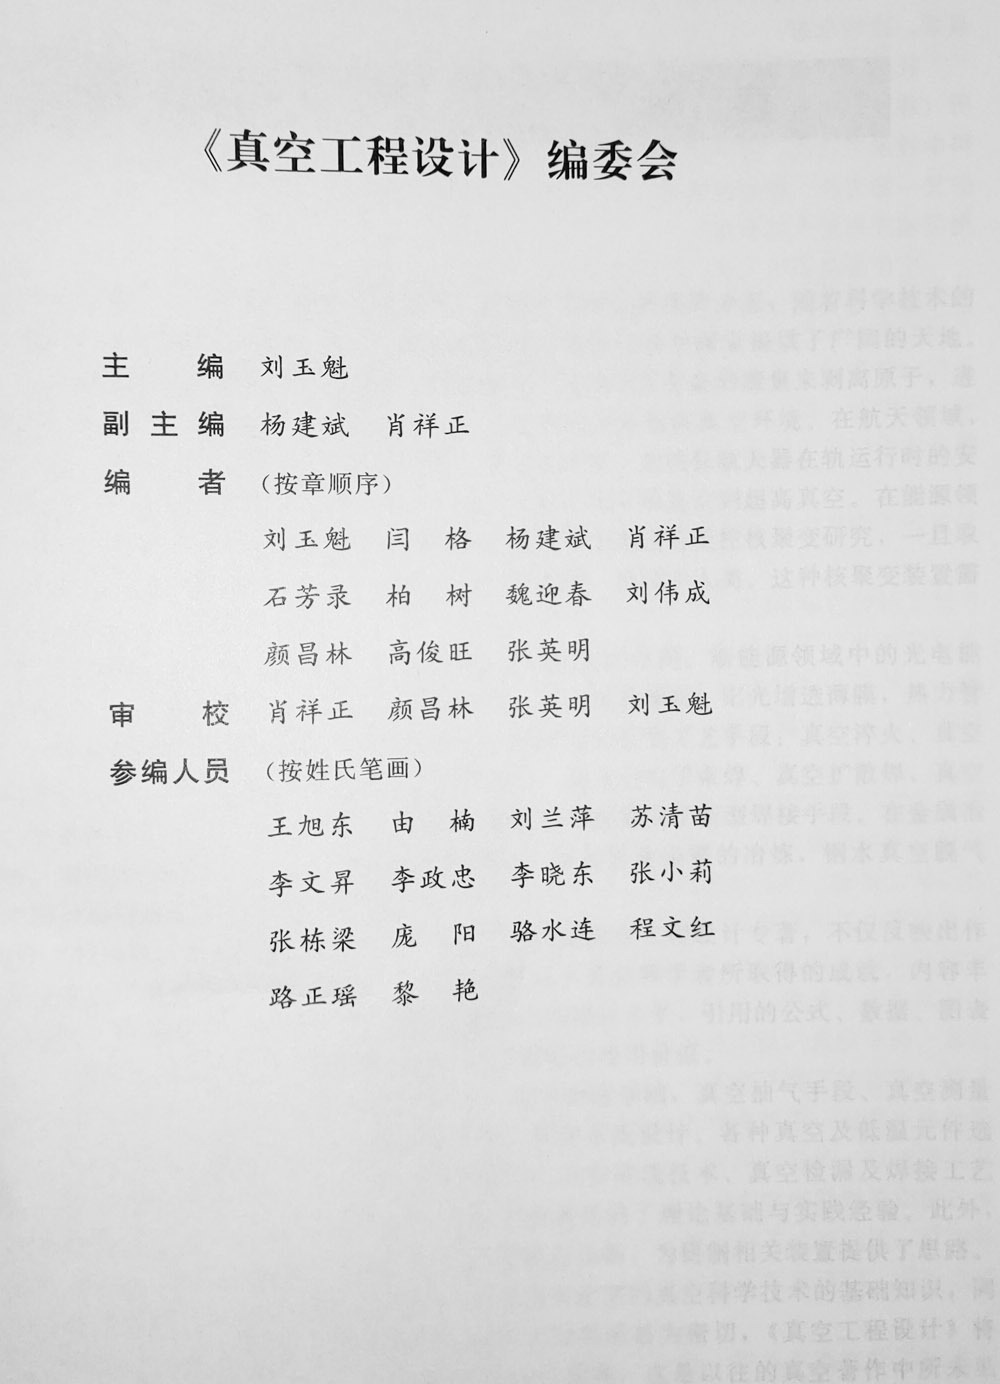 《真空工程设计》编委会
主 编 刘玉魁
副主编 杨建斌 肖祥正
编 者 (按章顺序)
刘玉魁 闫 格 杨建斌 肖祥正
石芳录 柏 树 魏迎春 刘伟成
颜昌林 高俊旺 张英明
审 校 肖祥正 颜昌林 张英明 刘玉魁
参编人员 (按姓氏笔画)
王旭东 由 楠 刘兰萍 苏清苗
李文昇 李政忠 李晓东 张小莉
张栋梁 庞 阳 骆水连 程文红
路正瑶 黎 艳